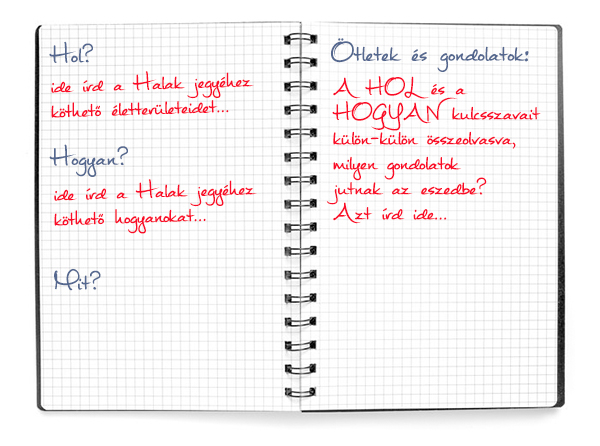 Hol?
ide írd a Halak jegyéhez
köthető életterületeidet...
Hogyan?
ide írd a Halak jegyéhez
köthető hogyanokat...
Mit?
Ötletek és gondolatok:
A HOL és a
HOGYAN kulcsszavait
külön-külön összeolvasva,
milyen gondolatok
jutnak az eszedbe?
Azt írd ide...